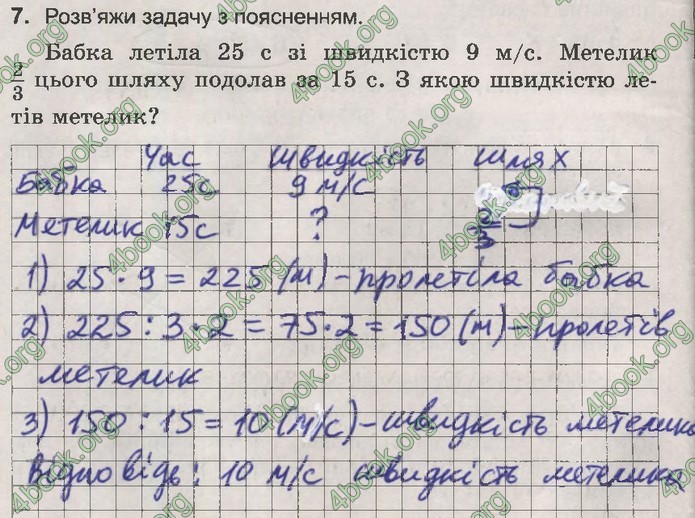 7. Розв'яжи задачу з поясненням.
Бабка летіла 25 с зі швидкістю 9 м/с. Метелик
2/3 цього шляху подолав за 15 с. З якою швидкістю ле-
тів метелик?
Час Швидкість Шлях
Бабка 25с 9 м/с
Метелик 15с ? 2/3
1) 25 · 9 = 225 (м) - пролетіла бабка
2) 225 : 3 · 2 = 75 · 2 = 150 (м) - пролетів
метелик
3) 150 : 15 = 10 (м/с) - швидкість метелика
Відповідь: 10 м/с швидкість метелика
4book.org